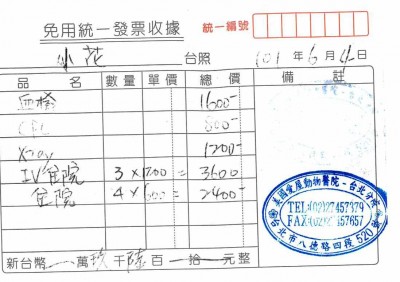 免用統一發票收據 統一編號
小花 台照 101年6月4日
品名 數量 單價 總價 備註
血檢 1600-
CPL 800-
X-ray 1200-
IV住院 3 × 1200 = 3600
住院 4 × 600 = 2400-
美國愛屋動物醫院-台北分院
TEL:(02)27457379
FAX:(02)27657657
台北市八德路四段520號
新台幣 萬玖千陸百 拾 元整